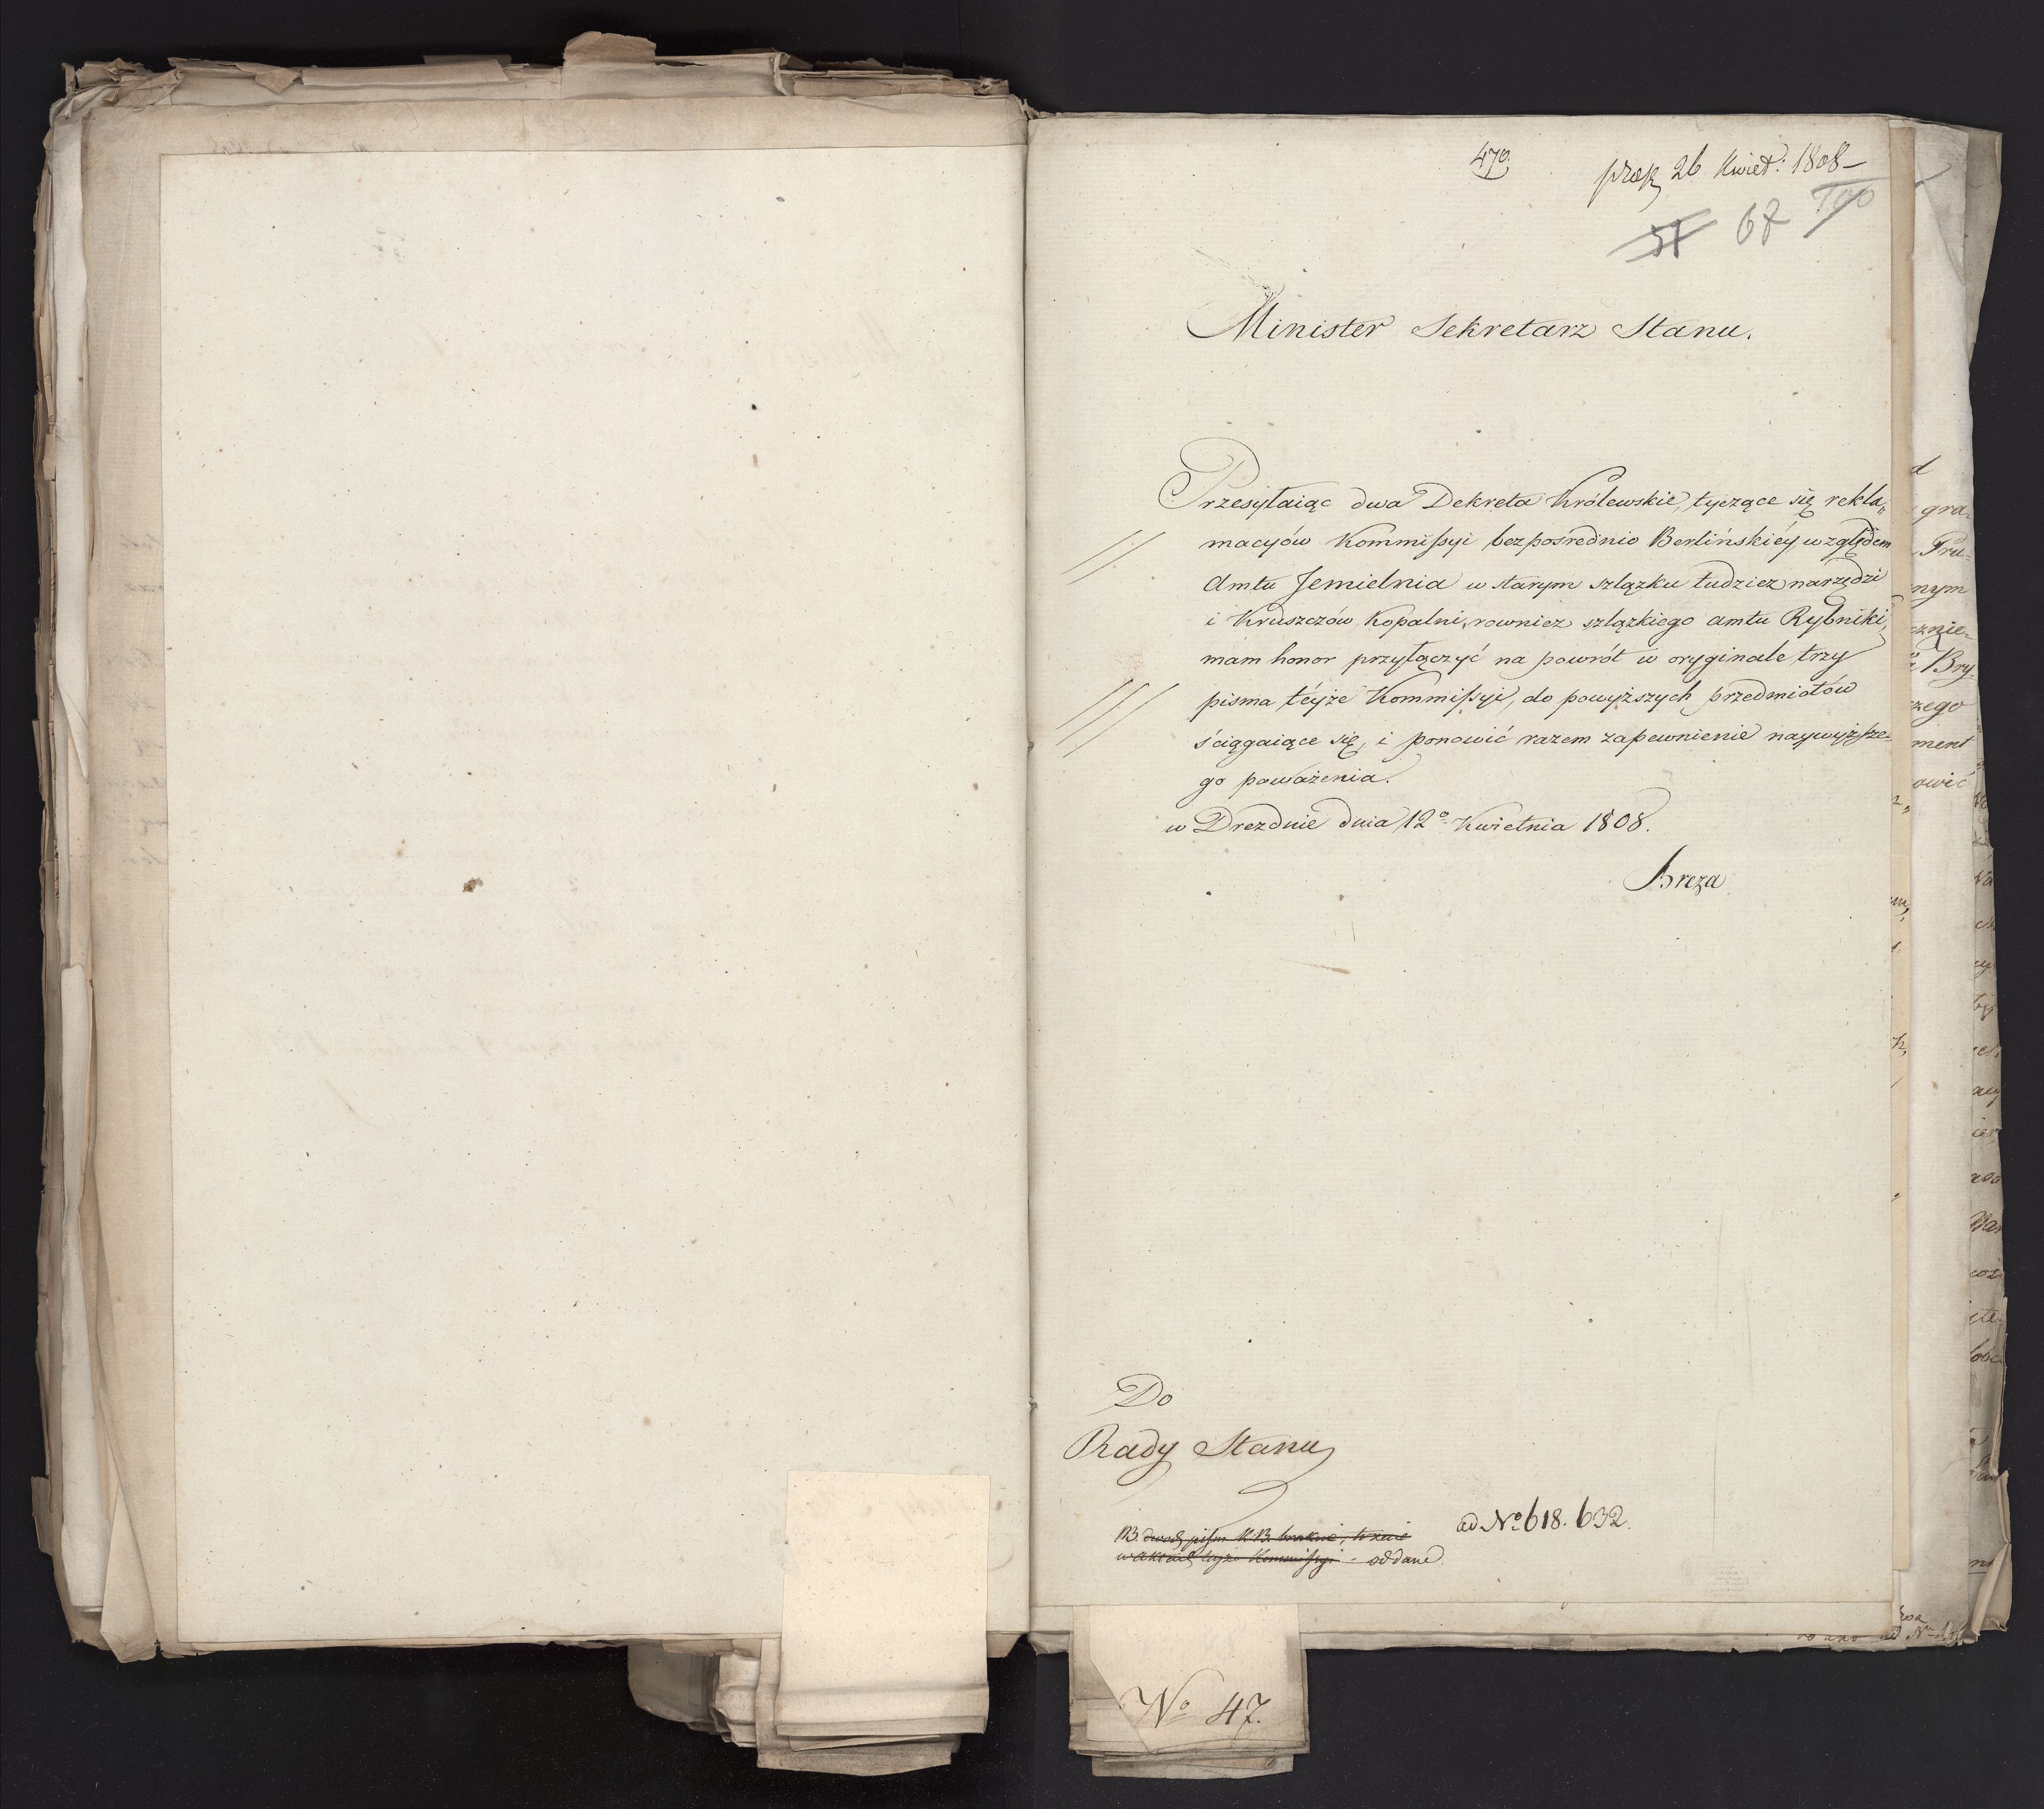 470.
præs 26 Kwiet: 1808 –
57 67 100
Minister Sekretarz Stanu.
Przesyłaiąc dwa Dekreta Królewskie, tyczące się rekla„
macyów Kommissyi bezpośrednio Berlińskiéy względem
Amtu Jemielnia w starym szlązku tudziez narzędzi
i Kruszczów Kopalni, rowniez szlązkiego amtu Rybniki,
mam honor przyłączyć na powrót w oryginale trzy
pisma téyże Kommissyi, do powyższych przedmiotów
ściągaiące się, i ponowić razem zapewnienie naywyższe„
go poważenia.
w Dreznie dnia 12º Kwietnia 1808.
Breza
Do
Rady Stanu
NB. dwóch pism K. B. brakuie, trzecie
w aktach teyże Kommissyi - oddane.
ad Nº 618. 632.
Nº 47.
gra„
Pru„
nym
cznie„
Bry„
czego
ment
owić